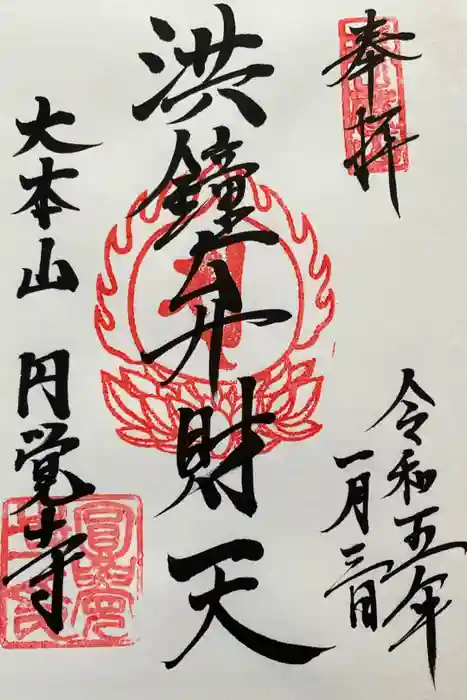 奉拝
令和五年
一月三日
洪鐘弁財天
大本山
円覚寺